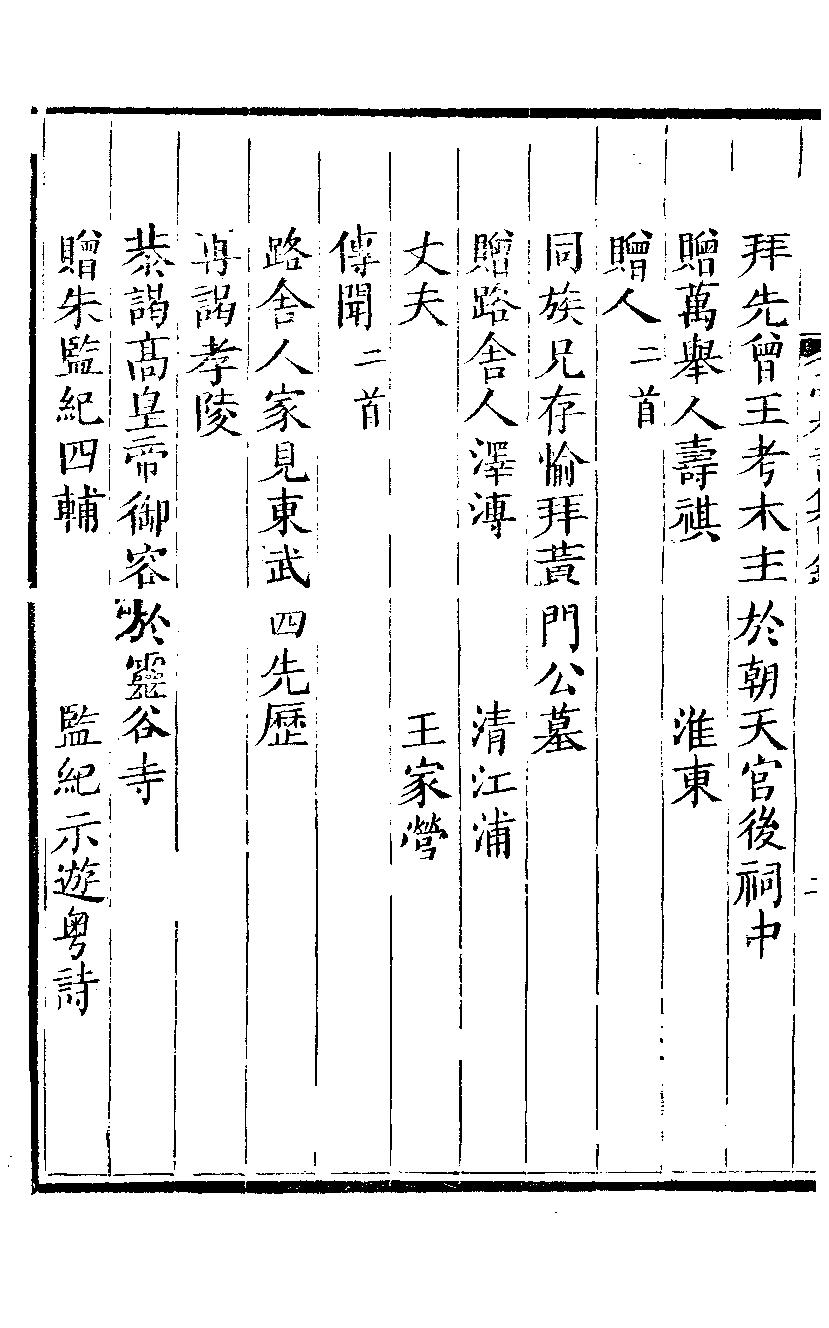 拜先曾王考木主於朝天宫後祠中
贈萬舉人壽祺 淮東
贈人二首
同族兄存愉拜黄門公墓
贈路舍人澤溥 清江浦
丈夫 王家營
傳聞二首
路舍人家見東武四先歷
再謁孝陵
恭謁髙皇帝御容於靈谷寺
贈朱監紀四輔 監紀示遊粤詩